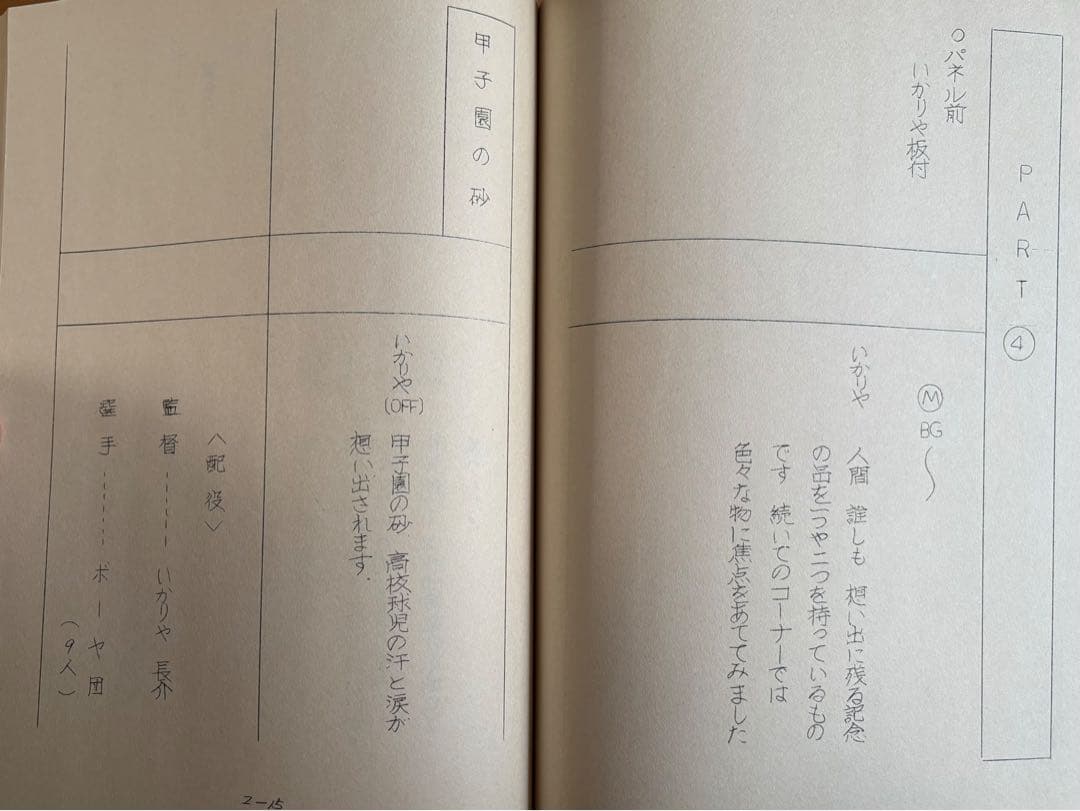 PART④
○パネル前
いかりや板付
Ⓜ
BG〜
いかりや 人間 誰しも 想い出に残る記念
の品を一つや二つを持っているもの
です 続いてのコーナーでは
色々な物に焦点をあててみました
甲子園の砂
いかりや(OFF) 甲子園の砂 高校球児の汗と涙が
想い出されます.
〈配役〉
監督------いかりや長介
選手------ボーヤ団
(9人)
2-15